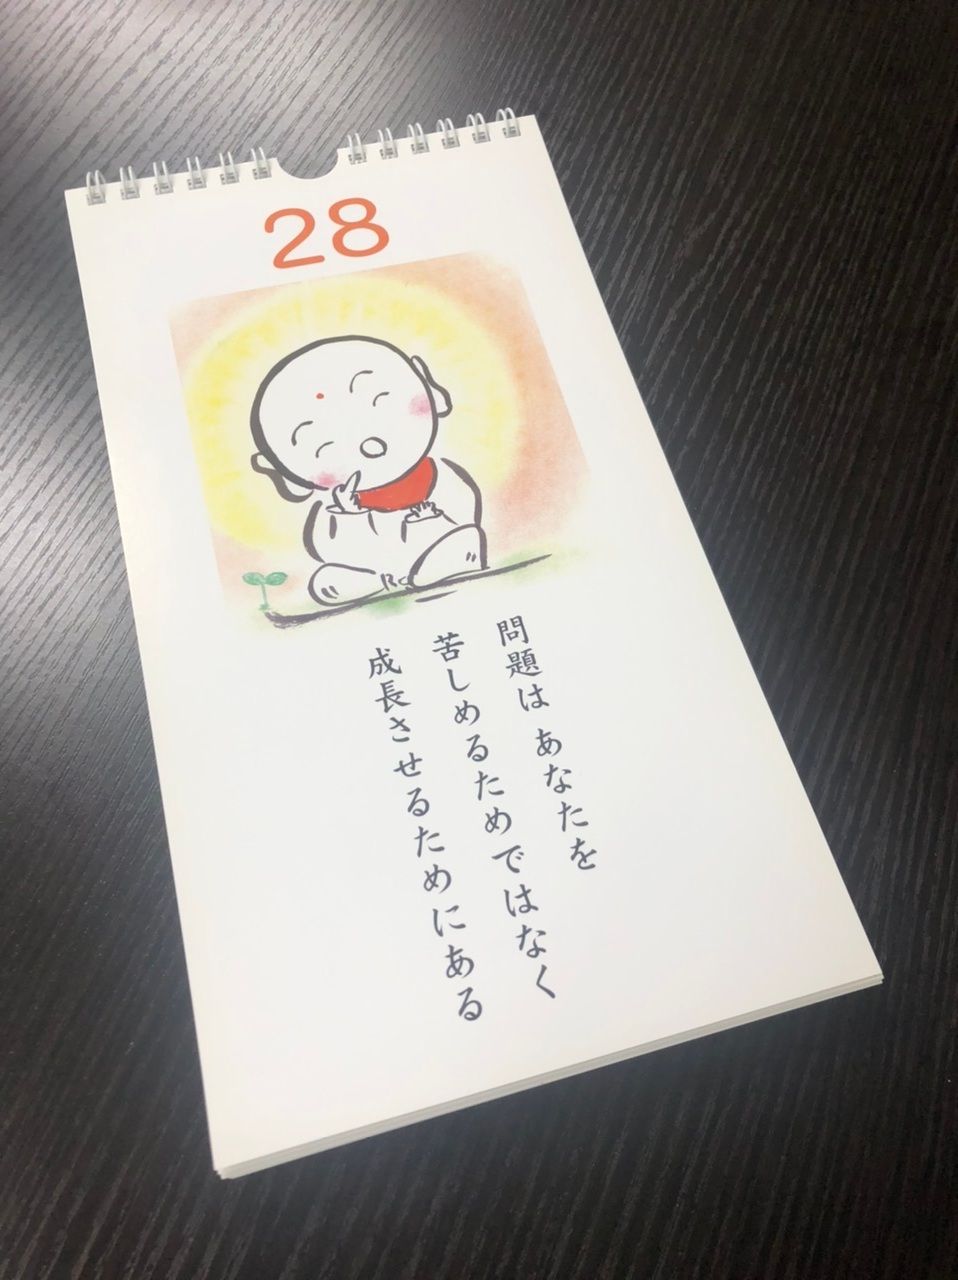 28
問題は あなたを
苦しめるためではなく
成長させるためにある